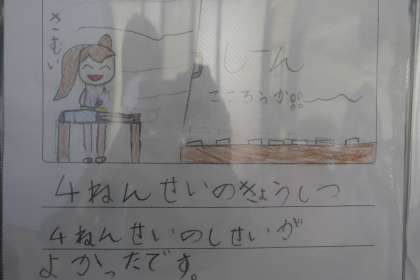 さむい
しーん
４ねんせいのきょうしつ
４ねんせいのしせいが
よかったです。